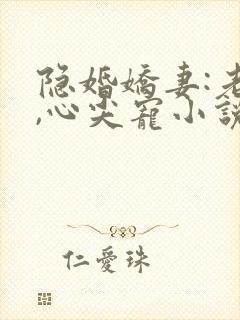 隐婚嬌妻:老
,心尖寵小說
仁愛珠